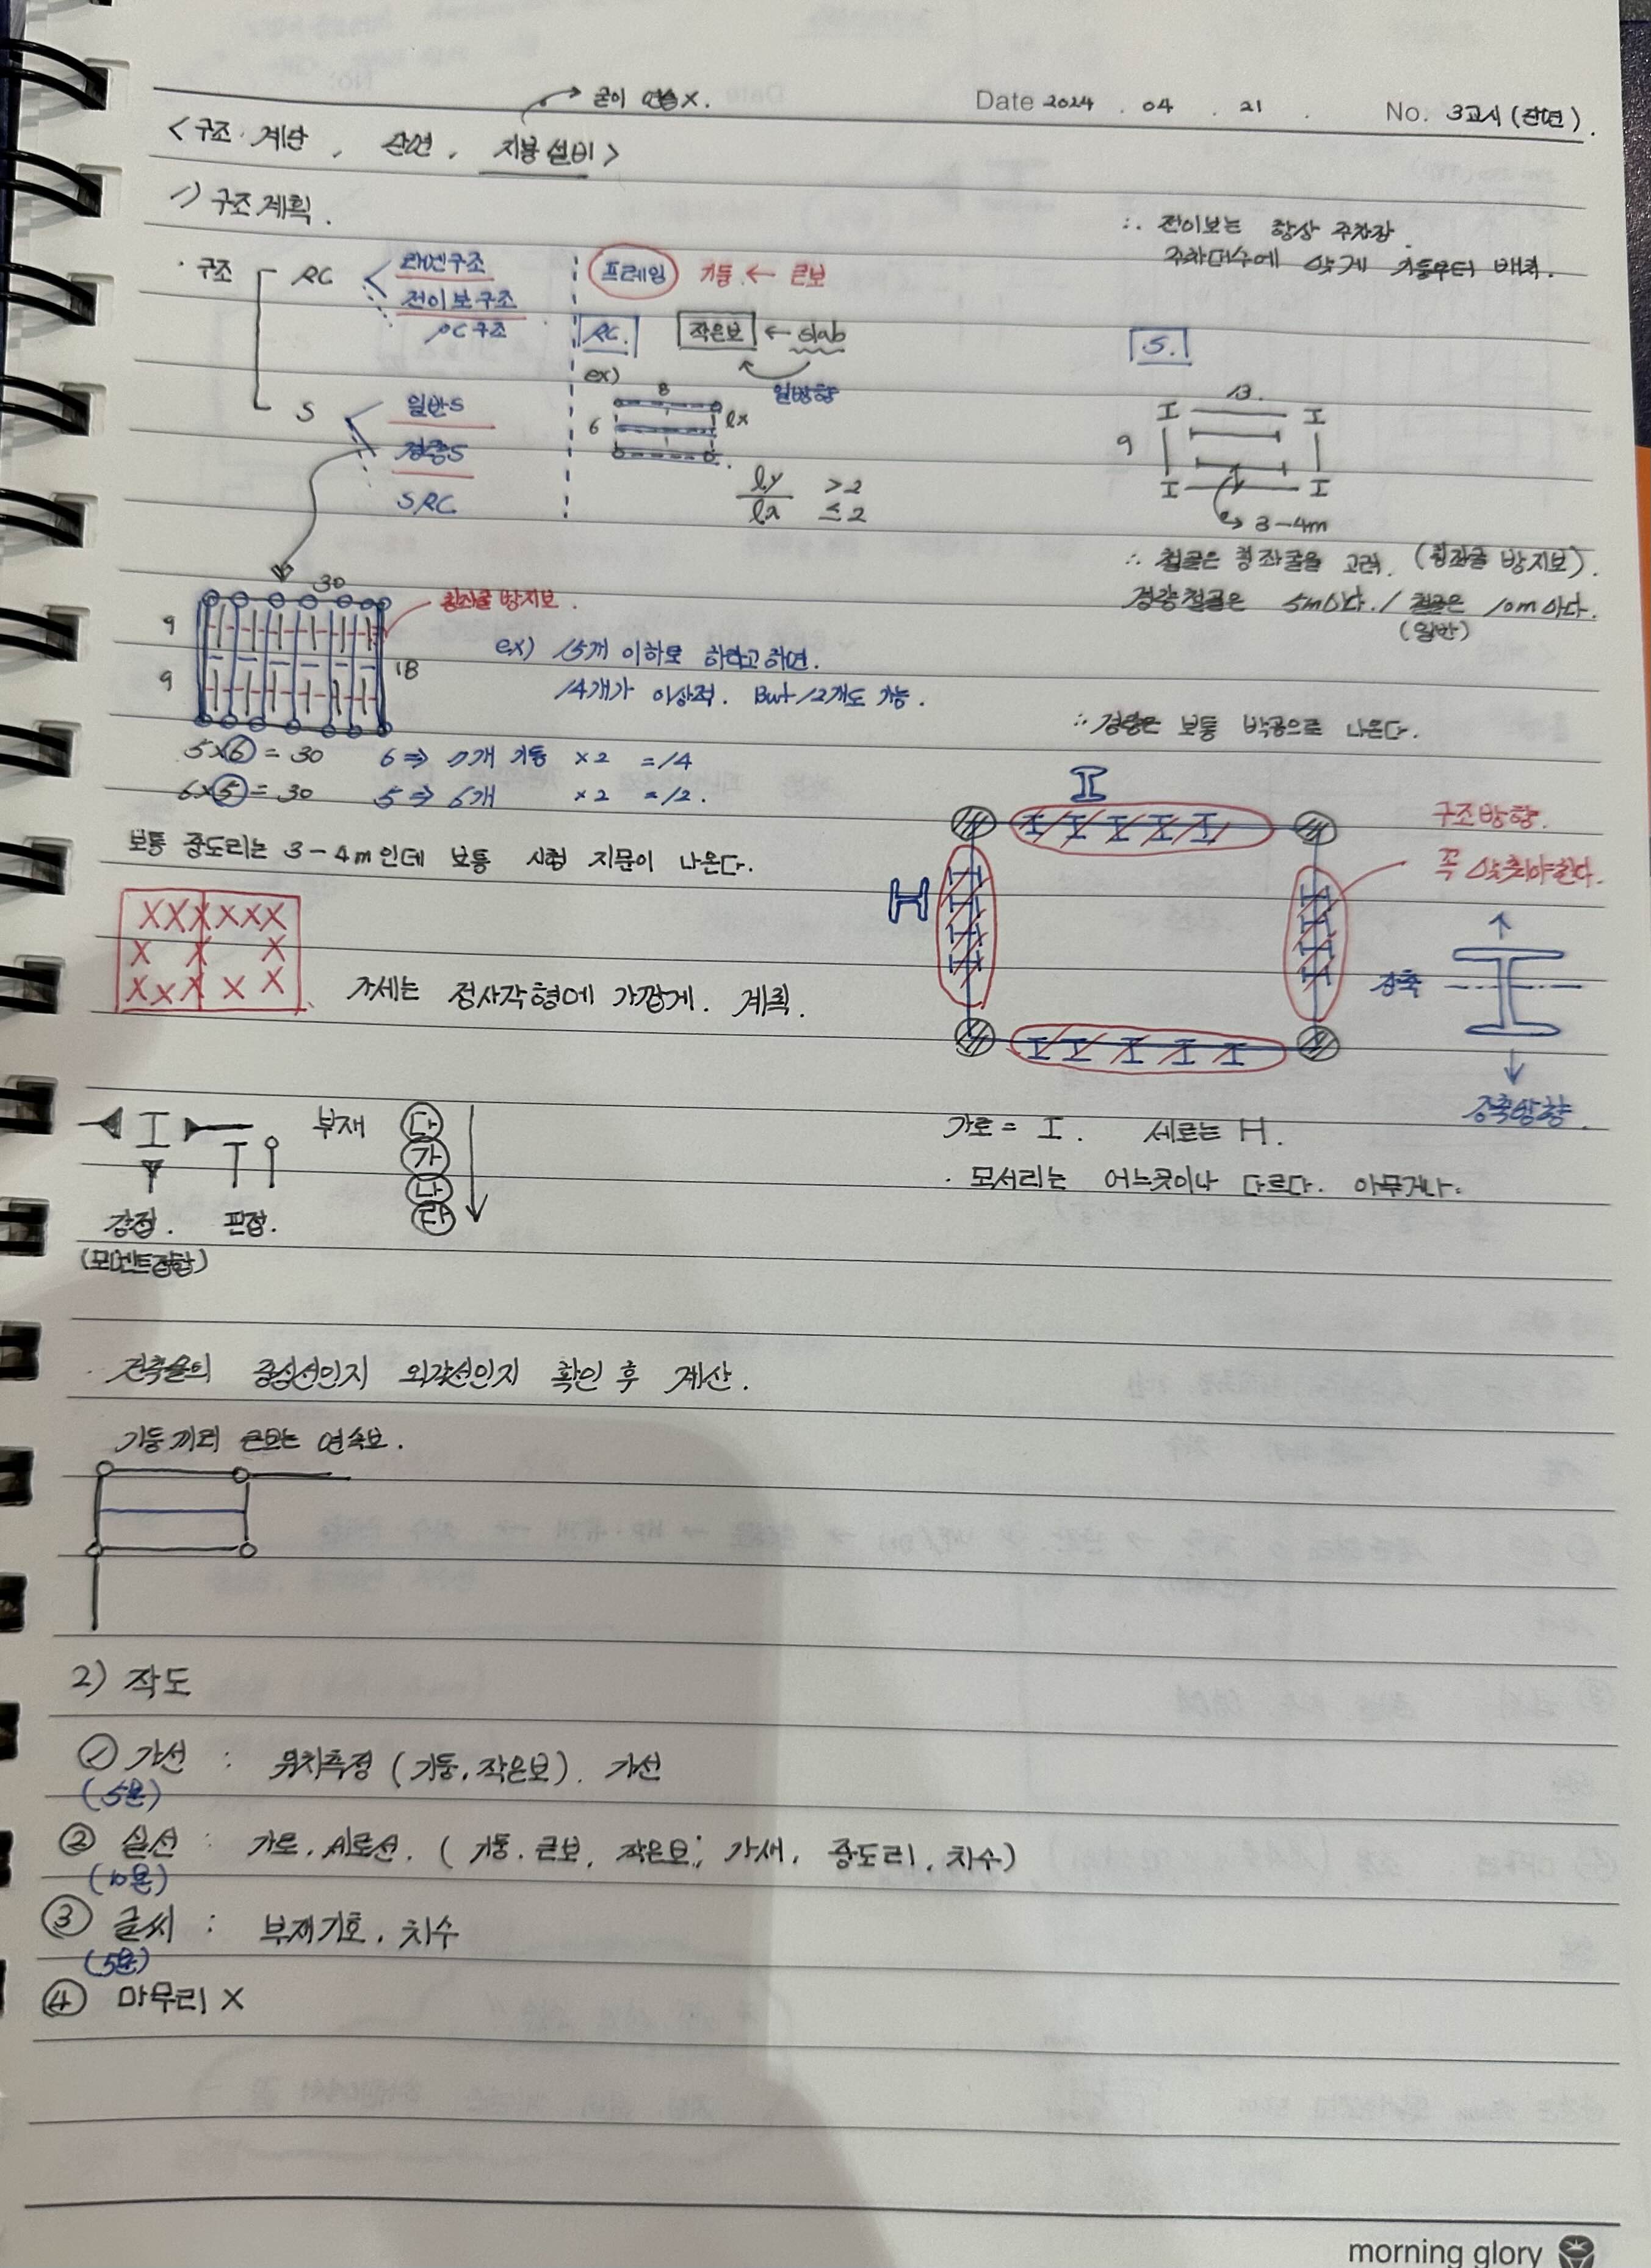 → 굳이 연습X.
Date 2024 . 04 . 21 . No. 3교시 (단면).
<구조. 계단, 단면, 지붕설비>
1) 구조계획.
∴ 전이보는 항상 주차장.
주차대수에 맞게 기둥부터 배치.
· 구조
RC
라멘구조
전이보구조
PC구조
S
일반S
경량S
SRC
프레임 기둥 ← 큰보
RC. 작은보 ← slab
일방향
ex)
8
6 lx
ly/lx >2 ≤2
S.
13.
9
3-4m
∴ 철골은 횡좌굴을 고려. (횡좌굴 방지보).
경량철골은 5m마다. / 철골은 10m마다.
(일반)
30
횡좌굴 방지보.
9
9
18
ex) 15개 이하로 하라고 하면.
14개가 이상적. But 12개도 가능.
∴ 경량은 보통 박공으로 나온다.
5×6 = 30 6 ⇒ 7개 기둥 ×2 =14
6×5 = 30 5 ⇒ 6개 ×2 =12.
보통 중도리는 3-4m인데 보통 시험 지문이 나온다.
I
H
구조방향.
꼭 맞춰야한다.
가새는 정사각형에 가깝게. 계획.
강축
강축방향.
부재 다 가 나 라
강접. 핀접.
(모멘트접합)
가로 = I. 세로는 H.
· 모서리는 어느곳이나 다르다. 아무거나.
· 건축물의 중심선인지 외곽선인지 확인 후 계산.
기둥끼리 큰보는 연속보.
2) 작도
① 가선 : 위치측정 (기둥, 작은보). 가선
(5분)
② 실선 : 가로, 세로선. (기둥. 큰보, 작은보, 가새, 중도리, 치수)
(10분)
③ 글씨 : 부재기호, 치수
(5분)
④ 마무리 X
morning glory